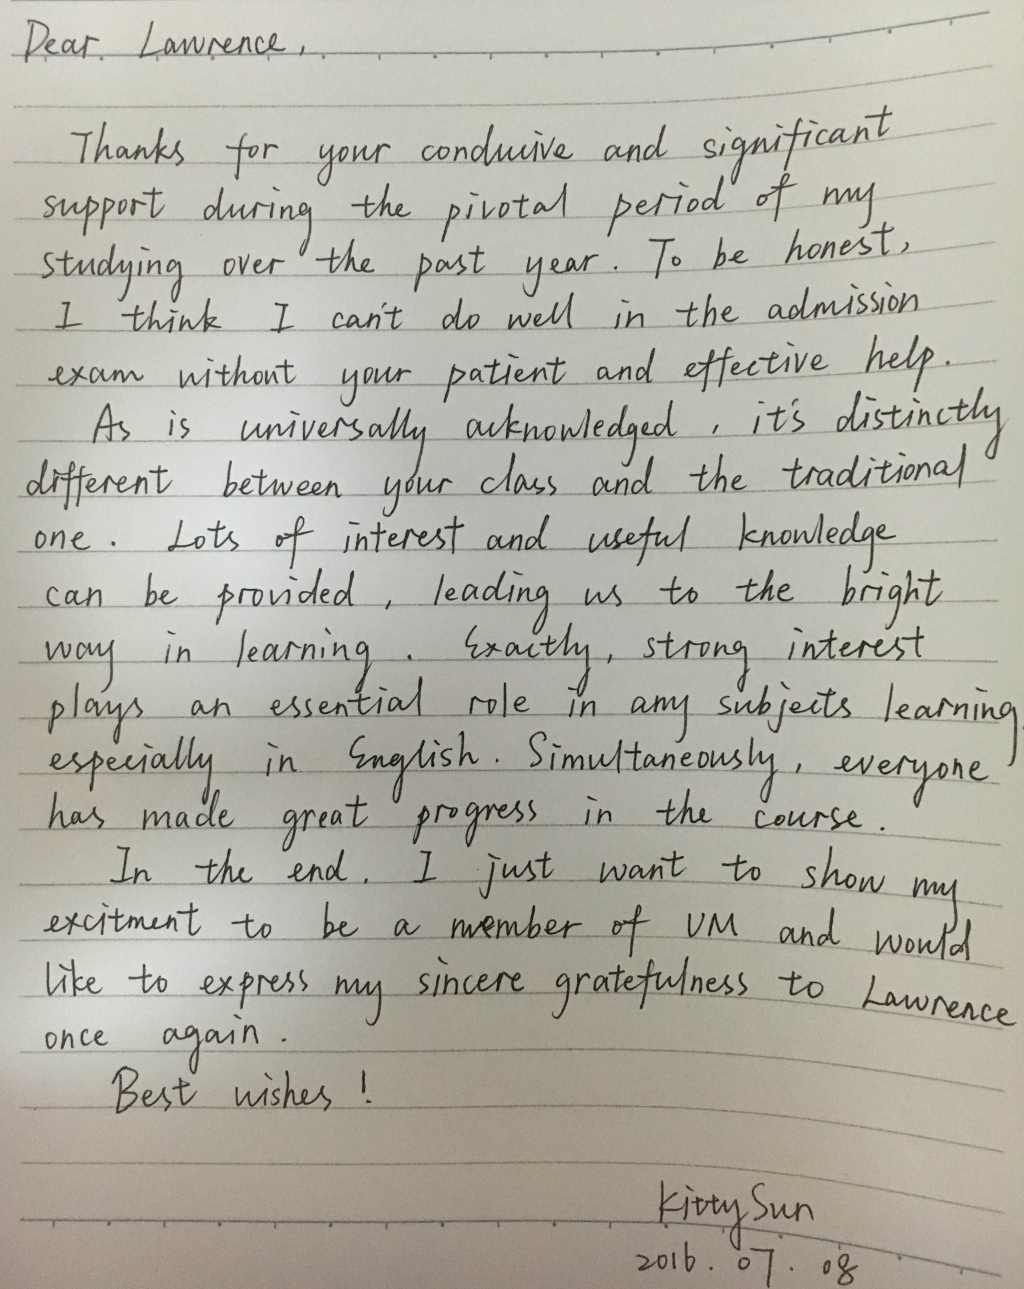 Dear Lawrence,
Thanks for your conducive and significant
support during the pivotal period of my
studying over the past year. To be honest,
I think I can't do well in the admission
exam without your patient and effective help.
As is universally acknowledged, it's distinctly
different between your class and the traditional
one. Lots of interest and useful knowledge
can be provided, leading us to the bright
way in learning. Exactly, strong interest
plays an essential role in any subjects learning,
especially in English. Simultaneously, everyone
has made great progress in the course.
In the end, I just want to show my
excitment to be a member of UM and would
like to express my sincere gratefulness to Lawrence
once again.
Best wishes!
Kitty Sun
2016.07.08